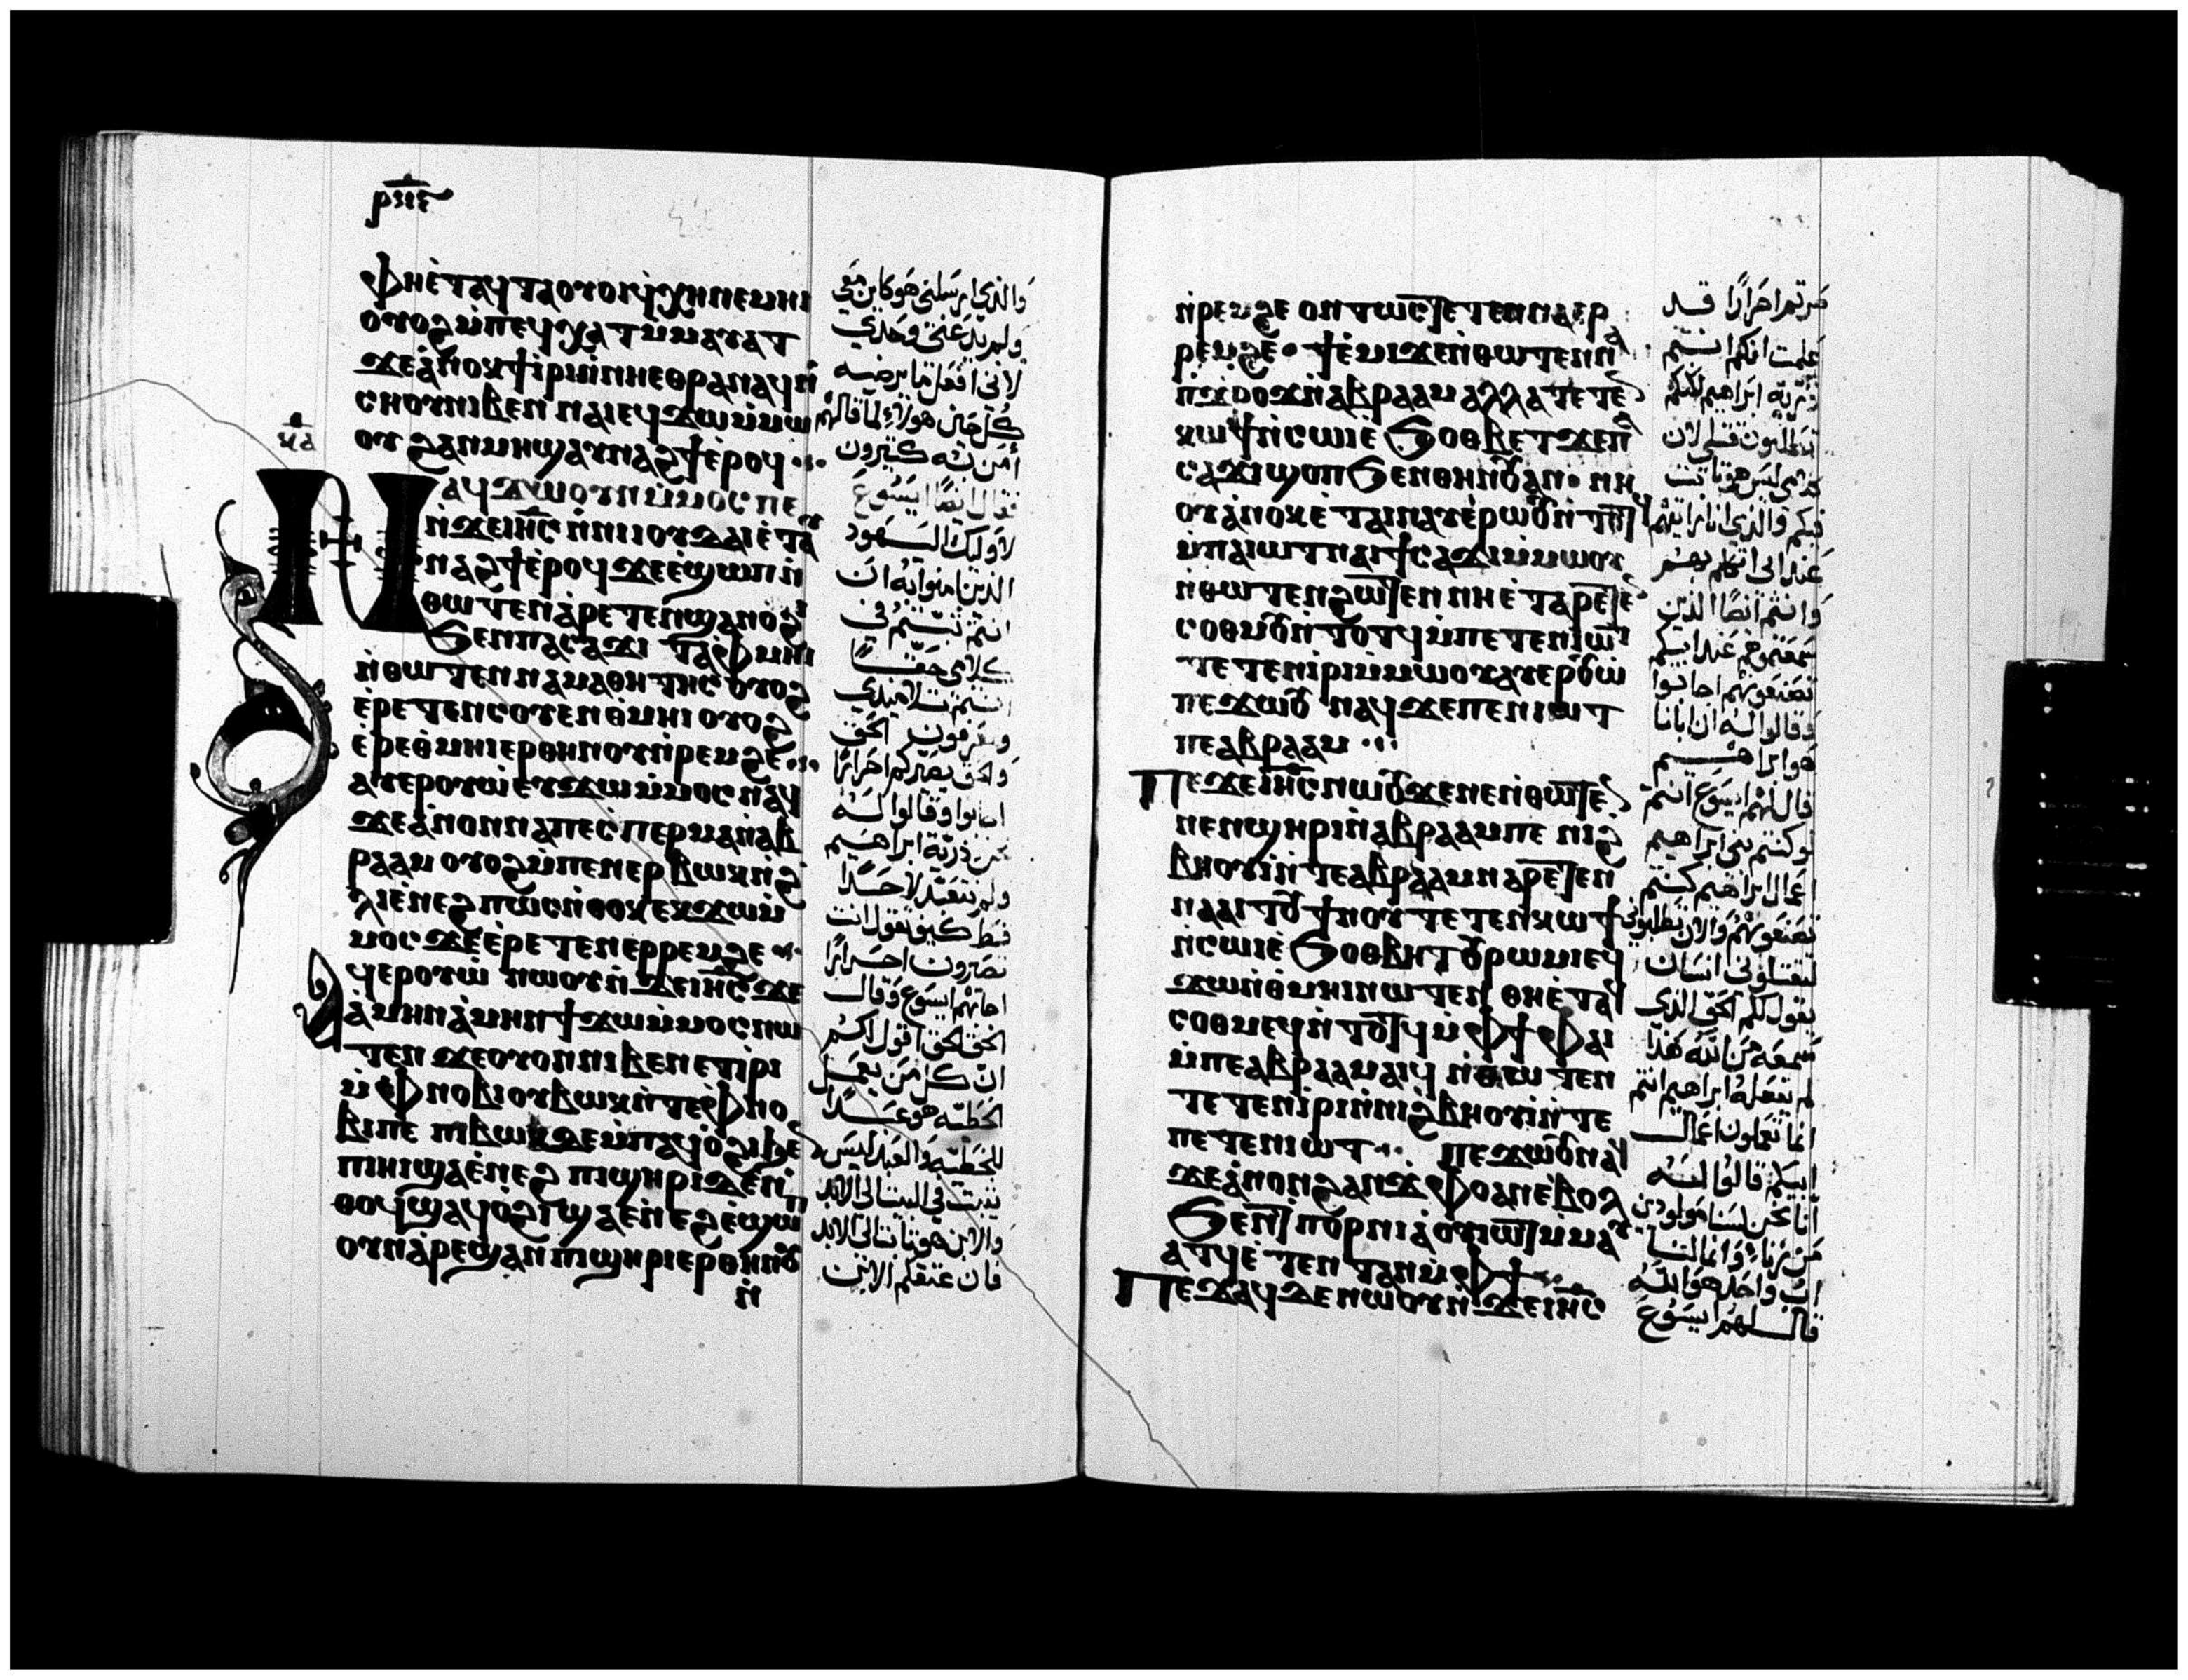 ⲣⲛⲉ
ⲫⲏⲉ̀ⲧⲁϥⲧⲁⲟⲩⲟⲓϥ̀ⲭⲏⲛⲉⲙⲏⲓ
ⲟⲩⲟϩⲙ̀ⲡⲉϥⲭⲁⲧⲙ̀ⲙⲁⲩⲁⲧ
ϫⲉⲁ̀ⲛⲟⲕϯⲓ̀ⲣⲓⲙ̀ⲛⲏⲉⲑⲣⲁⲛⲁϥⲛ̀
ⲥⲏⲟⲩⲛⲓⲃⲉⲛ ⲛⲁⲓⲉϥϫⲱⲙ̀ⲙⲱ
ⲟⲩ ϩⲁⲛⲙⲏϣⲁⲩⲛⲁϩϯⲉ̀ⲣⲟϥ
ⲕⲁ
ⲛⲁϥϫⲱⲟⲩⲛⲙ̀ⲙⲟⲥⲡⲉ
ⲛ̀ϫⲉⲓⲏⲥ ⲛ̀ⲛⲓⲓⲟⲩⲇⲁⲓⲉ̀ⲧⲁⲩ
ⲛⲁϩϯⲉ̀ⲣⲟϥ ϫⲉⲉ̀ϣⲱⲡ ⲛ̀
ⲑⲱⲧⲉⲛⲁ̀ⲣⲉⲧⲉⲛϣⲁⲛⲟ̀ϩⲓ
ϧⲉⲛⲡⲁⲥⲁϫⲓ ⲧⲁⲫⲙⲏⲓ
ⲛ̀ⲑⲱⲧⲉⲛ ⲛⲁⲙⲁⲑⲏⲧⲏⲥ ⲟⲩⲟϩ
ⲉ̀ⲣⲉⲧⲉⲛⲥⲟⲩⲉⲛⲑ̀ⲙⲏⲓ ⲟⲩⲟϩ
ⲉ̀ⲣⲉⲑ̀ⲙⲏⲓⲉⲣⲑⲏⲛⲟⲩⲛ̀ⲣⲉⲙϩⲉ
ⲁⲩⲉⲣⲟⲩⲱ̀ⲉⲩϫⲱⲙ̀ⲙⲟⲥ ⲛⲁϥ
ϫⲉⲁ̀ⲛⲟⲛ ⲛⲁⲡⲉⲥⲡⲉⲣⲙⲁⲛ̀ⲁⲃ
ⲣⲁⲁⲙ ⲟⲩⲟϩⲙ̀ⲡⲉⲛⲉⲣⲃⲱⲕⲛ̀ϩ
ⲗⲓⲉ̀ⲛⲉϩ ⲡⲱⲥⲛ̀ⲑⲟⲕ ⲉⲕϫⲱⲙ̀
ⲙⲟⲥ ϫⲉⲉ̀ⲣⲉⲧⲉⲛⲉⲣⲣⲉⲙϩⲉ
ⲁϥⲉⲣⲟⲩⲱ̀ ⲛⲱⲟⲩⲛ̀ϫⲉⲓⲏⲥ ϫⲉ
ⲁ̀ⲙⲏⲛⲁ̀ⲙⲏⲛϯϫⲱⲙ̀ⲙⲟⲥⲛⲱ
ⲧⲉⲛ ϫⲉⲟⲩⲟⲛⲛⲓⲃⲉⲛⲉⲧⲓ̀ⲣⲓ
ⲙ̀ⲫⲛⲟⲃⲓⲟⲩⲃⲱⲕⲛ̀ⲧⲉⲫⲛⲟ
ⲃⲓⲡⲉ ⲡⲓⲃⲱⲕⲇⲉⲙ̀ⲡⲁϥⲟ̀ϩⲓϧⲉⲛ
ⲡⲓⲏⲓϣⲁⲉ̀ⲛⲉϩ ⲡⲓϣⲏⲣⲓⲇⲉⲛ̀
ⲑⲟϥϣⲁϥⲟ̀ϩⲓϣⲁⲉ̀ⲛⲉϩ ⲉ̀ϣⲱⲡ
ⲟⲩⲛⲁ̀ⲣⲉϣⲁⲛⲡⲓϣⲏⲣⲓⲉⲣⲑⲏⲛⲟⲩ
ⲛ̀
والذي ارسلني هو كاين معي
ولم يدعني وحدي
لاني افعل ما يرضيه
كل حين هولاء لما قالهم
امن به كثيرون
فقال ايضا ايسوع
لاوليك اليهود
الذين امنوا به ان
انتم ثبتم في
كلامي حقا
انتم تلاميذي
وتعرفون الحق
والحق يصيركم احرارا
اجابوا وقالوا له
نحن ذرية ابراهيم
ولم نتعبد لاحدا
قط كيف تقول انت
تصيرون احرارا
اجابهم ايسوع وقال
الحق الحق اقول لكم
ان كل من يعمل
الخطيه هو عبدا
للخطيه والعبد ليس
يثبت في البيت الي الابد
والابن هو ثابتا الي الابد
فان عتقكم الابن
ⲛ̀ⲣⲉⲙϩⲉ ⲟⲛⲧⲱⲥ ⲧⲉⲧⲉⲛⲛⲁⲉⲣ
ⲣⲉⲙϩⲉ ϯⲉ̀ⲙⲓϫⲉⲛ̀ⲑⲱⲧⲉⲛⲛ̀ⲁ
ⲡ̀ϫⲣⲟϫⲛ̀ⲁⲃⲣⲁⲁⲙ ⲁⲗⲗⲁ ⲧⲉⲧⲉⲛ
ⲕⲱϯⲛ̀ⲥⲱⲓⲉ̀ϧⲟⲑⲃⲉⲧ ϫⲉⲡⲁ
ⲥⲁϫⲓϣⲟⲡϧⲉⲛⲑⲏⲛⲟⲩⲁⲛ ⲛⲏ
ⲟⲩⲁ̀ⲛⲟⲕⲉ̀ⲧⲁⲓⲛⲁⲩⲉ̀ⲣⲱⲟⲩⲛ̀ⲧⲉⲛ
ⲙ̀ⲡⲁⲓⲱⲧ ⲛⲁⲓϯⲥⲁϫⲓⲙ̀ⲙⲱⲟⲩ
ⲛ̀ⲑⲱⲧⲉⲛϩⲱⲧⲉⲛ ⲛⲏⲉ̀ⲧⲁⲣⲉⲧⲉⲛ
ⲥⲟⲑⲙⲟⲩⲛ̀ⲧⲟⲧϥⲙ̀ⲡⲉⲧⲉⲛⲓⲱⲧ
ⲧⲉⲧⲉⲛⲓ̀ⲣⲓⲙ̀ⲙⲱⲟⲩ ⲁⲩⲉⲣⲟⲩⲱ̀
ⲡⲉϫⲱⲟⲩ ⲛⲁϥϫⲉⲡⲉⲛⲓⲱⲧ
ⲡⲉⲁⲃⲣⲁⲁⲙ
ⲡⲉϫⲉⲓⲏⲥ ⲛⲱⲟⲩϫⲉⲛⲉⲛ̀ⲑⲱⲧⲉⲛ
ⲛⲉⲛϣⲏⲣⲓⲛ̀ⲁⲃⲣⲁⲁⲙⲡⲉ ⲛⲓϩ
ⲃⲏⲟⲩⲓ̀ⲛ̀ⲧⲉⲁⲃⲣⲁⲁⲙⲛⲁⲣⲉⲧⲉⲛ
ⲛⲁⲁⲓⲧⲟⲩ ϯⲛⲟⲩ ⲧⲉⲧⲉⲛⲕⲱϯ
ⲛ̀ⲥⲱⲓⲉ̀ϧⲟⲑⲃⲉⲧ ⲟⲩⲣⲱⲙⲓⲉϥ
ϫⲱⲛ̀ⲑ̀ⲙⲏⲓⲛⲱⲧⲉⲛ ⲑⲏⲉ̀ⲧⲁⲓ
ⲥⲟⲑⲙⲉⲥⲛ̀ⲧⲟⲧϥⲙ̀ⲫϯ ⲫⲁⲓ
ⲙ̀ⲡⲉⲁⲃⲣⲁⲁⲙⲁⲓϥ ⲛ̀ⲑⲱⲧⲉⲛ
ⲧⲉⲧⲉⲛⲓ̀ⲣⲓⲛ̀ⲛⲓϩⲃⲏⲟⲩⲓ̀ⲛ̀ⲧⲉ
ⲡⲉⲧⲉⲛⲓⲱⲧ ⲡⲉϫⲱⲟⲩⲛⲁϥ
ϫⲉⲁ̀ⲛⲟⲛϩⲁⲛϫ̀ⲫⲟⲁⲛⲉ̀ⲃⲟⲗ
ϧⲉⲛⲟⲩⲡⲟⲣⲛⲓⲁ̀ⲟⲩⲓⲱⲧⲙ̀ⲙⲁⲩ
ⲁⲧϥⲉ̀ⲧⲉⲛⲧⲁⲛⲙ̀ⲫϯ
ⲡⲉϫⲁϥⲇⲉⲛⲱⲟⲩⲛ̀ϫⲉⲓⲏⲥ
صرتم احرارا قد
علمت انكم انتم
ذرية ابراهيم لكنكم
تطلبون قتلي لان
كلامي ليس هو ثابت
فيكم والذي انا رايتهم
عند ابي اتكلم بهم
وانتم ايضا الذين
سمعتموهم عند ابيكم
تصنعونهم اجابوا
وقالوا له ان ابانا
هو ابراهيم
قال لهم ايسوع انتم
لو كنتم بني ابراهيم
اعمال ابراهيم كنتم
تصنعونهم والان تطلبوني
لتقتلوني انسان
يقول لكم الحق الذي
سمعه من الله هذا
لم يفعله ابراهيم انتم
انما تعملون اعمال
ابيكم قالوا له
انا نحن لسنا مولودين
من زناء وانما لنا
اب واحد هو الله
قال لهم ايسوع